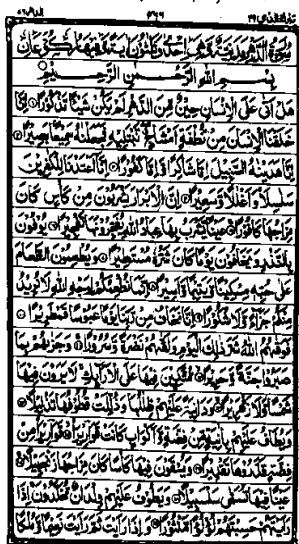 سُورَةُ الدَّهْرِ
بِسْمِ اللهِ الرَّحْمٰنِ الرَّحِيْمِ
هَلْ اَتٰى عَلَى الْاِنْسَانِ حِيْنٌ مِّنَ الدَّهْرِ لَمْ يَكُنْ شَيْئًا مَّذْكُوْرًا اِنَّا
خَلَقْنَا الْاِنْسَانَ مِنْ نُّطْفَةٍ اَمْشَاجٍ نَّبْتَلِيْهِ فَجَعَلْنٰهُ سَمِيْعًا بَصِيْرًا
اِنَّا هَدَيْنٰهُ السَّبِيْلَ اِمَّا شَاكِرًا وَّاِمَّا كَفُوْرًا اِنَّا اَعْتَدْنَا لِلْكٰفِرِيْنَ
سَلٰسِلَا وَاَغْلٰلًا وَّسَعِيْرًا اِنَّ الْاَبْرَارَ يَشْرَبُوْنَ مِنْ كَاْسٍ كَانَ
مِزَاجُهَا كَافُوْرًا عَيْنًا يَّشْرَبُ بِهَا عِبَادُ اللهِ يُفَجِّرُوْنَهَا تَفْجِيْرًا يُوْفُوْنَ
بِالنَّذْرِ وَيَخَافُوْنَ يَوْمًا كَانَ شَرُّهٗ مُسْتَطِيْرًا وَيُطْعِمُوْنَ الطَّعَامَ
عَلٰى حُبِّهٖ مِسْكِيْنًا وَّيَتِيْمًا وَّاَسِيْرًا اِنَّمَا نُطْعِمُكُمْ لِوَجْهِ اللهِ لَا نُرِيْدُ
مِنْكُمْ جَزَآءً وَّلَا شُكُوْرًا اِنَّا نَخَافُ مِنْ رَّبِّنَا يَوْمًا عَبُوْسًا قَمْطَرِيْرًا
فَوَقٰىهُمُ اللهُ شَرَّ ذٰلِكَ الْيَوْمِ وَلَقّٰىهُمْ نَضْرَةً وَّسُرُوْرًا وَجَزٰىهُمْ بِمَا
صَبَرُوْا جَنَّةً وَّحَرِيْرًا مُّتَّكِئِيْنَ فِيْهَا عَلَى الْاَرَآئِكِ لَا يَرَوْنَ فِيْهَا
شَمْسًا وَّلَا زَمْهَرِيْرًا وَدَانِيَةً عَلَيْهِمْ ظِلٰلُهَا وَذُلِّلَتْ قُطُوْفُهَا تَذْلِيْلًا
وَيُطَافُ عَلَيْهِمْ بِاٰنِيَةٍ مِّنْ فِضَّةٍ وَّاَكْوَابٍ كَانَتْ قَوَارِيْرَا قَوَارِيْرَا مِنْ
فِضَّةٍ قَدَّرُوْهَا تَقْدِيْرًا وَيُسْقَوْنَ فِيْهَا كَاْسًا كَانَ مِزَاجُهَا زَنْجَبِيْلًا
عَيْنًا فِيْهَا تُسَمّٰى سَلْسَبِيْلًا وَيَطُوْفُ عَلَيْهِمْ وِلْدَانٌ مُّخَلَّدُوْنَ اِذَا
رَاَيْتَهُمْ حَسِبْتَهُمْ لُؤْلُؤًا مَّنْثُوْرًا وَاِذَا رَاَيْتَ ثَمَّ رَاَيْتَ نَعِيْمًا وَّمُلْكًا